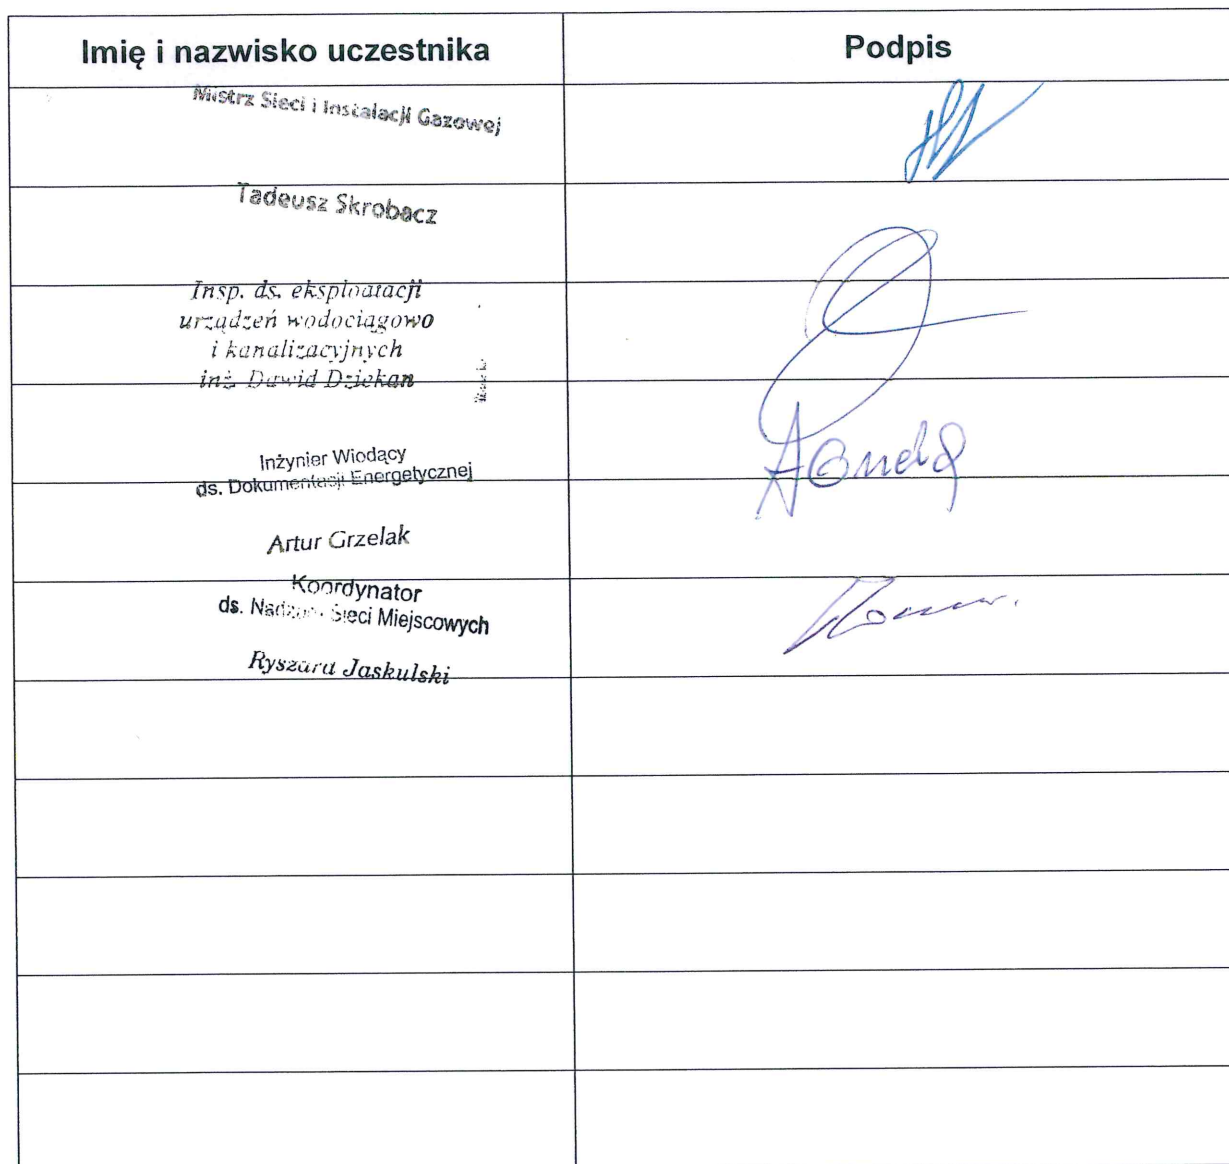 Imię i nazwisko uczestnika
Podpis
Mistrz Sieci i Instalacji Gazowej
Tadeusz Skrobacz
Insp. ds. eksploatacji
urządzeń wodociągowo
i kanalizacyjnych
inż. Dawid Dziekan
Inżynier Wiodący
ds. Dokumentacji Energetycznej
Artur Grzelak
Koordynator
ds. Nadzoru Sieci Miejscowych
Ryszard Jaskulski